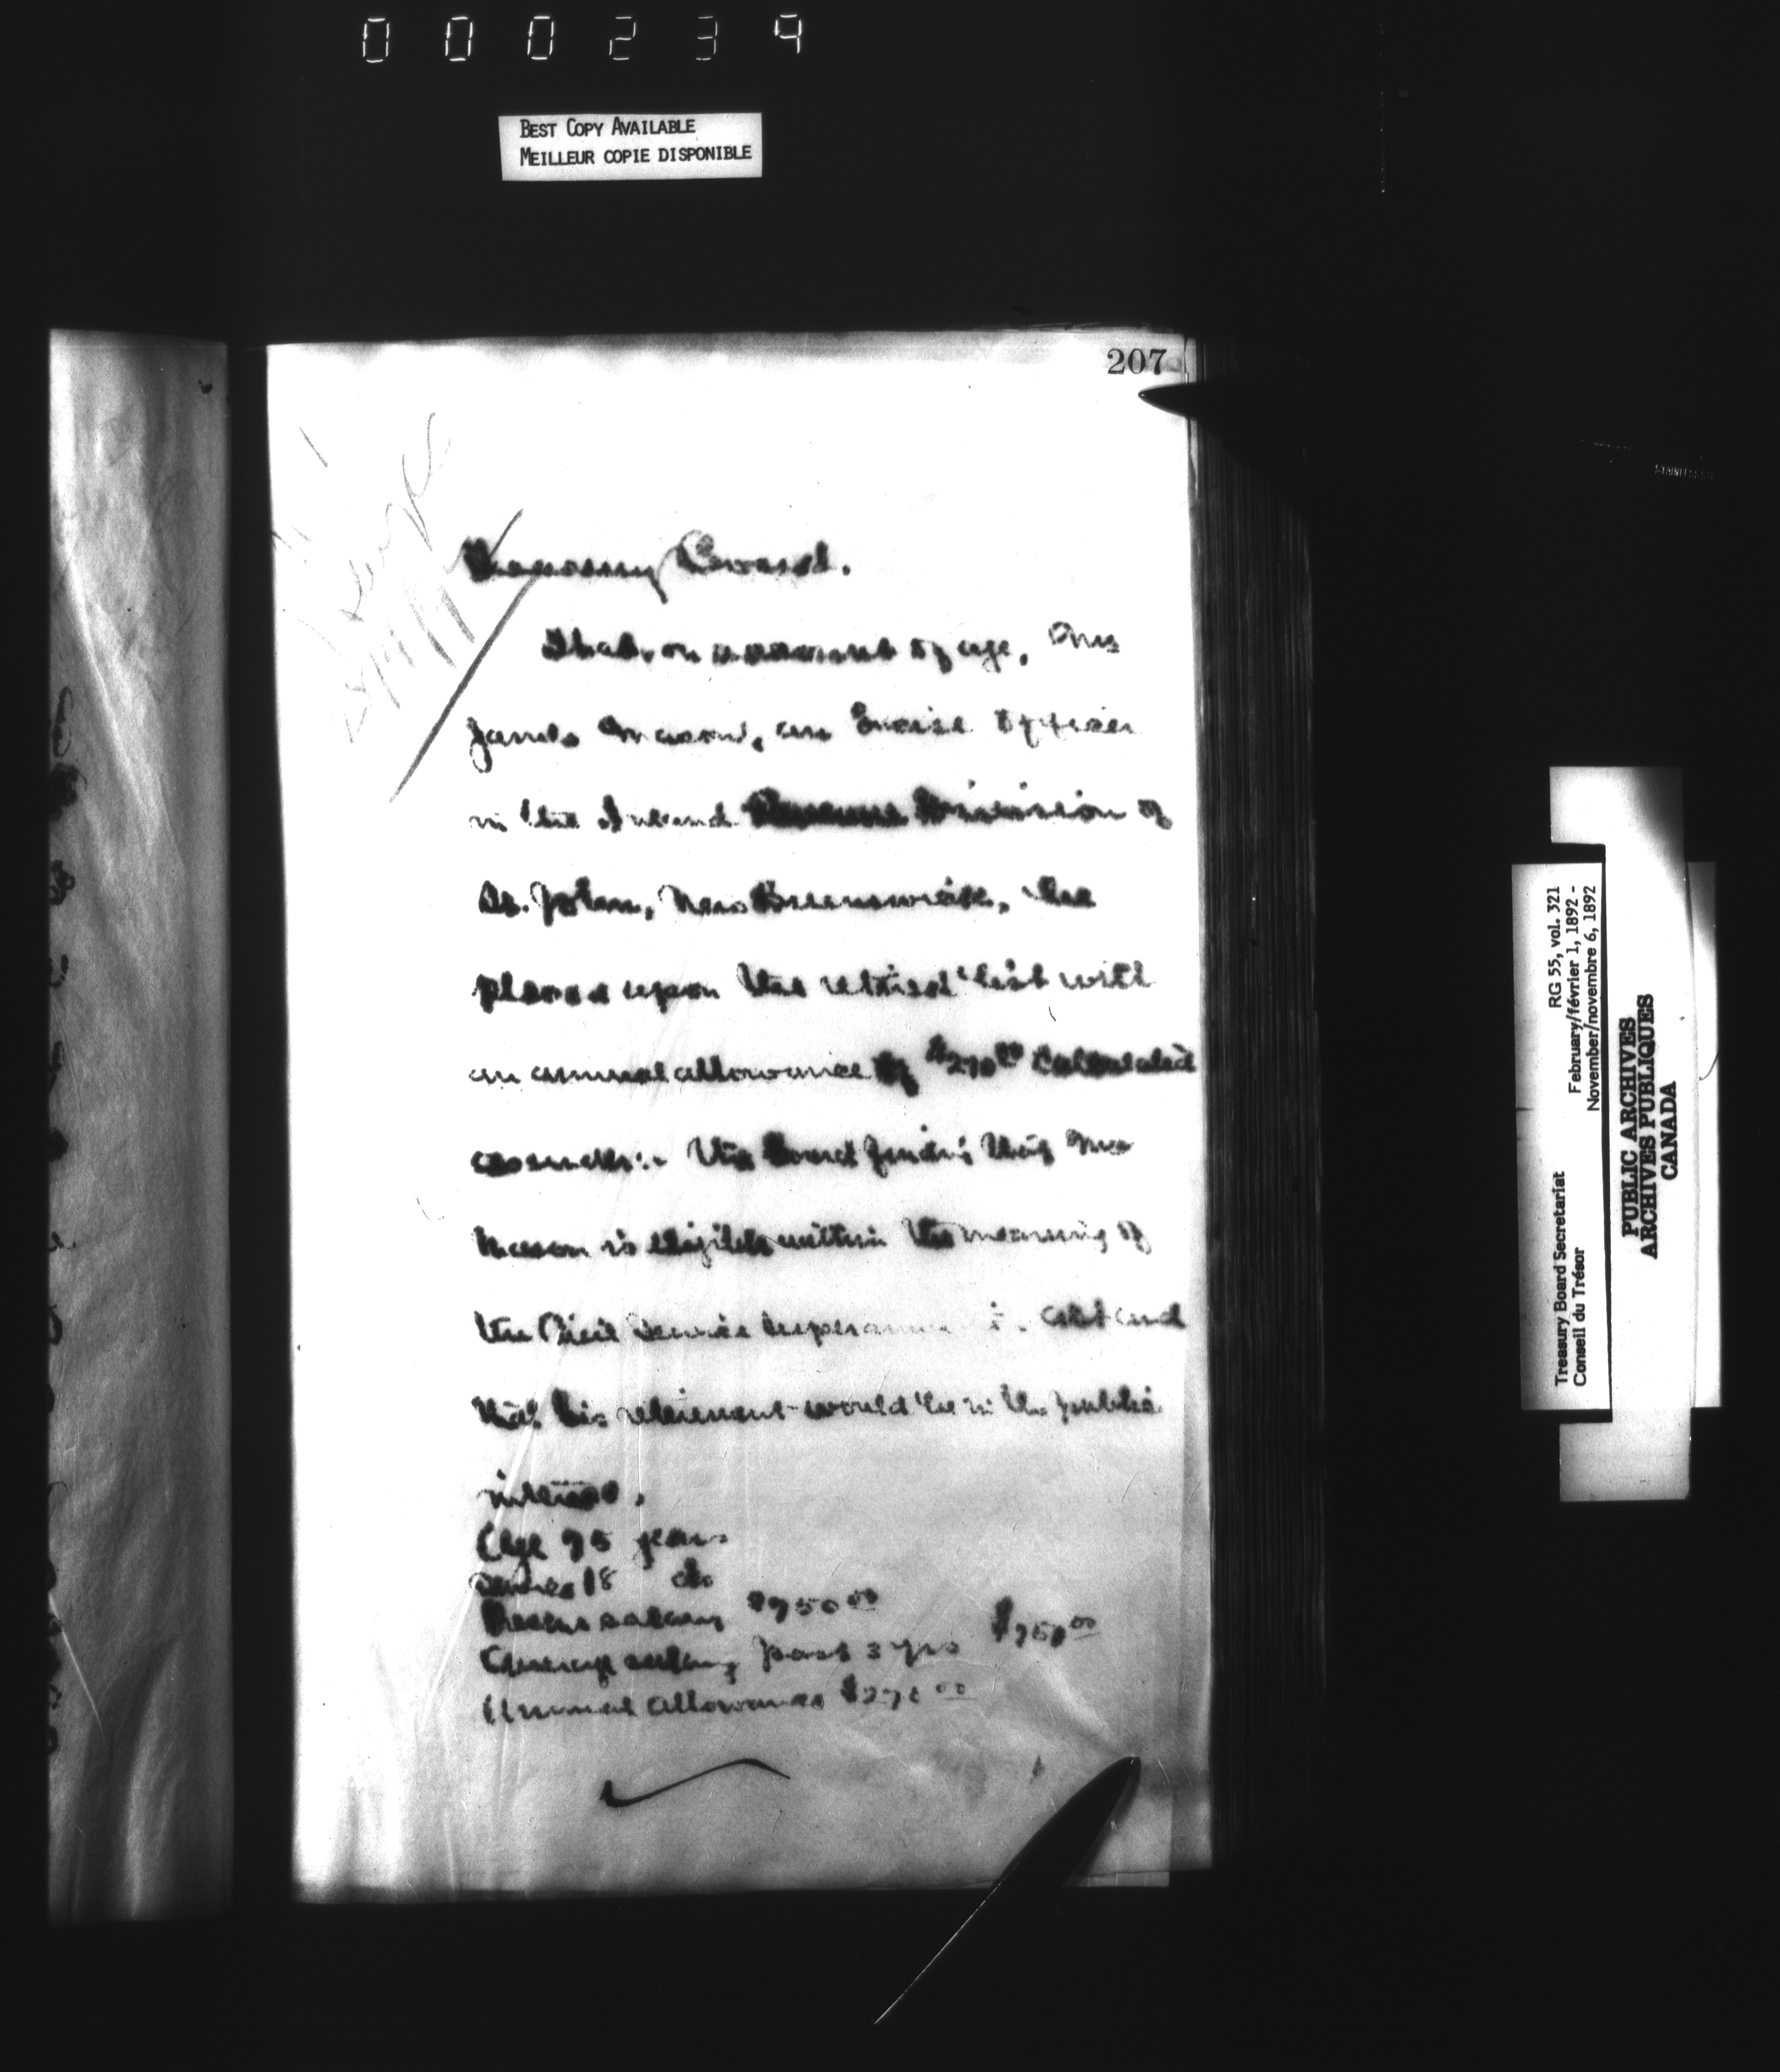 000239
BEST COPY AVAILABLE
MEILLEUR COPIE DISPONIBLE
207
Treasury Board.
That, on account of age, Mr
James Mason, an Excise Officer
in the Inland Revenue Division of
St. John, New Brunswick, be
placed upon the retired list with
an annual allowance of $270.00 calculated
as under:- The Board finding that Mr
Mason is eligible within the meaning of
the Civil Service Superannuation Act and
that his retirement would be in the public
interest.
Age 75 years
Service 18 do
Present salary $750.00
Average salary past 3 yrs $750.00
Annual allowance $270.00
RG 55, vol. 321
February/février 1, 1892 -
November/novembre 6, 1892
Treasury Board Secretariat
Conseil du Trésor
PUBLIC ARCHIVES
ARCHIVES PUBLIQUES
CANADA